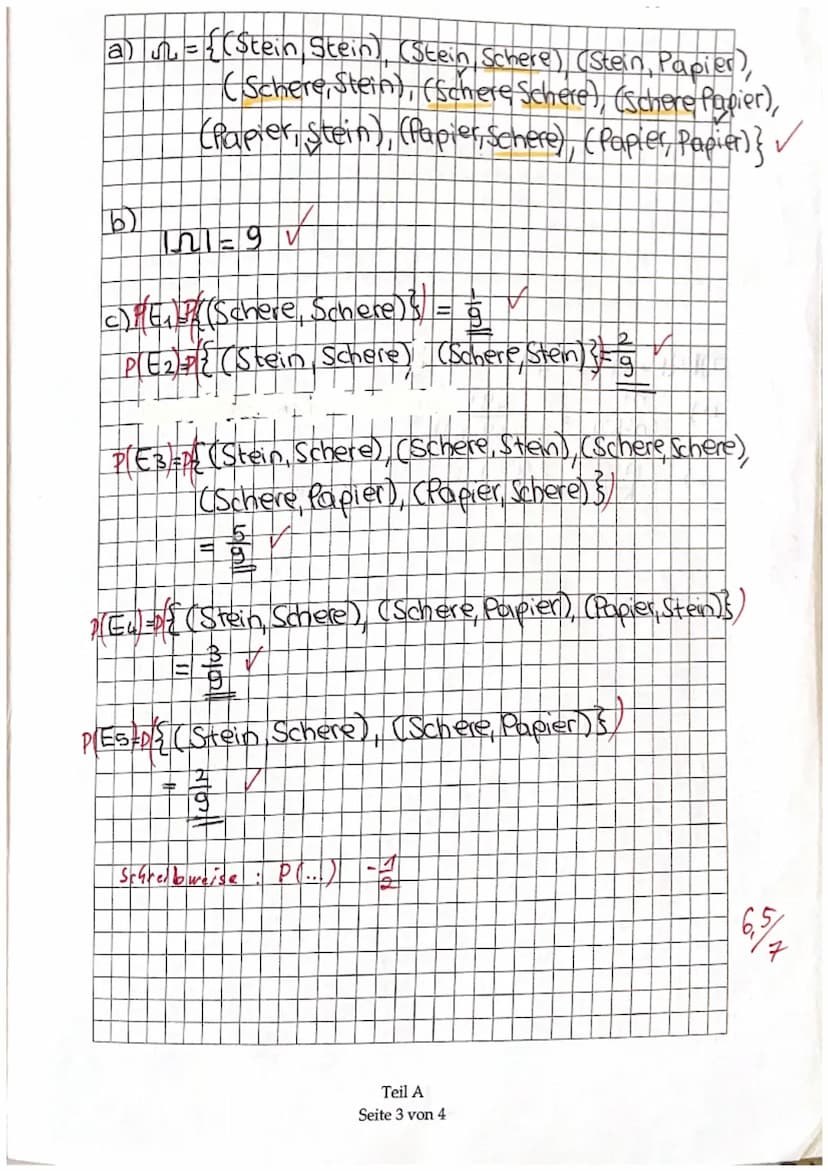 a) Ω = {(Stein, Stein), (Stein, Schere), (Stein, Papier),
(Schere, Stein), (Schere, Schere), (Schere, Papier),
(Papier, Stein), (Papier, Schere), (Papier, Papier)} ✓
b)
|Ω| = 9 ✓
c) P(E₁)=P({(Schere, Schere)}) = 1/9 ✓
P(E₂)=P({(Stein, Schere), (Schere, Stein)}) = 2/9 ✓
P(E3)=P({(Stein, Schere), (Schere, Stein), (Schere, Schere),
(Schere, Papier), (Papier, Schere)})
= 5/9 ✓
P(E₄)=P({(Stein, Schere), (Schere, Papier), (Papier, Stein)})
= 3/9 ✓
P(E5)=P({(Stein, Schere), (Schere, Papier)})
= 2/9 ✓
Schreibweise : P(...) -1/2
6,5/7
Teil A
Seite 3 von 4